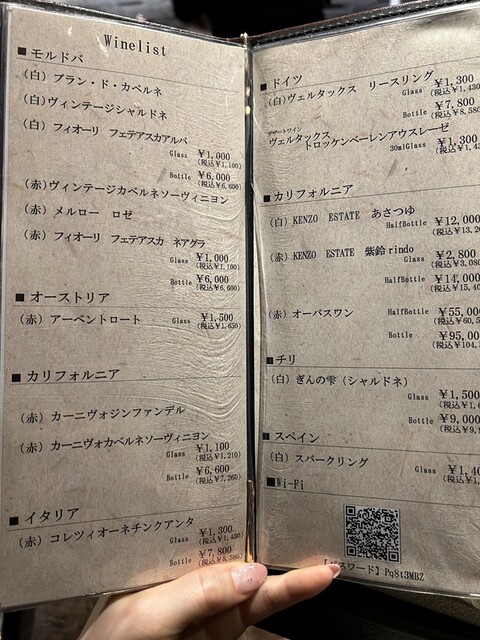 Winelist
■モルドバ
（白）ブラン・ド・カベルネ
（白）ヴィンテージシャルドネ
（白）フィオーリ フェテアスカアルバ
Glass ￥1,000
（税込￥1,100）
Bottle ￥6,000
（税込￥6,600）
（赤）ヴィンテージカベルネソーヴィニヨン
（赤）メルロー ロゼ
（赤）フィオーリ フェテアスカ ネアグラ
Glass ￥1,000
（税込￥1,100）
Bottle ￥6,000
（税込￥6,600）
■オーストリア
（赤）アーベントロート Glass ￥1,500
（税込￥1,650）
■カリフォルニア
（赤）カーニヴォジンファンデル
（赤）カーニヴォカベルネソーヴィニヨン
Glass ￥1,100
（税込￥1,210）
Bottle ￥6,600
（税込￥7,260）
■イタリア
（赤）コレツィオーネチンクアンタ
Glass ￥1,300
（税込￥1,430）
Bottle ￥7,800
（税込￥8,580）
■ドイツ
（白）ヴェルタックス リースリング
Glass ￥1,300
（税込￥1,430
Bottle ￥7,800
（税込￥8,580
デザートワイン
ヴェルタックス
トロッケンベーレンアウスレーゼ
30mlGlass ￥1,300
（税込￥1,43
■カリフォルニア
（白）KENZO ESTATE あさつゆ
HalfBottle ￥12,000
（税込￥13,20
（赤）KENZO ESTATE 紫鈴 rindo
Glass ￥2,800
（税込￥3,080
HalfBottle ￥14,000
（税込￥15,40
（赤）オーパスワン HalfBottle ￥55,000
（税込￥60,5
Bottle ￥95,00
（税込￥104,
■チリ
（白）ぎんの雫（シャルドネ）
Glass ￥1,500
（税込￥1,6
Bottle ￥9,000
（税込￥9,9
■スペイン
（白）スパークリング Glass ￥1,40
（税込￥1,
■Wi-Fi
【パスワード】Pq8t3MBZ